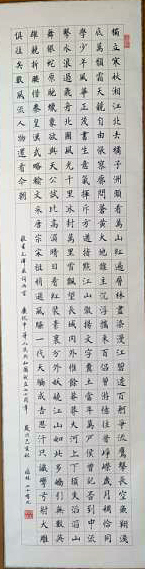 獨立寒秋湘江北去橘子洲頭看萬山紅遍層林盡染漫江碧透百舸爭流鷹擊長空魚翔淺
底萬類霜天競自由悵寥廓問蒼茫大地誰主沉浮攜來百侶曾遊憶往昔崢嶸歲月稠恰同
學少年風華正茂書生意氣揮斥方遒指點江山激揚文字糞土當年萬戶侯曾記否到中流
擊水浪遏飛舟北國風光千里冰封萬里雪飄望長城內外惟餘莽莽大河上下頓失滔滔山
舞銀蛇原馳蠟象欲與天公試比高須晴日看紅裝素裹分外妖嬈江山如此多嬌引無數英
雄競折腰惜秦皇漢武略輸文采唐宗宋祖稍遜風騷一代天驕成吉思汗只識彎弓射大雕
俱往矣數風流人物還看今朝
敬書毛澤東詞兩首 慶祝中華人民共和國成立七十周年 歲次己亥秋